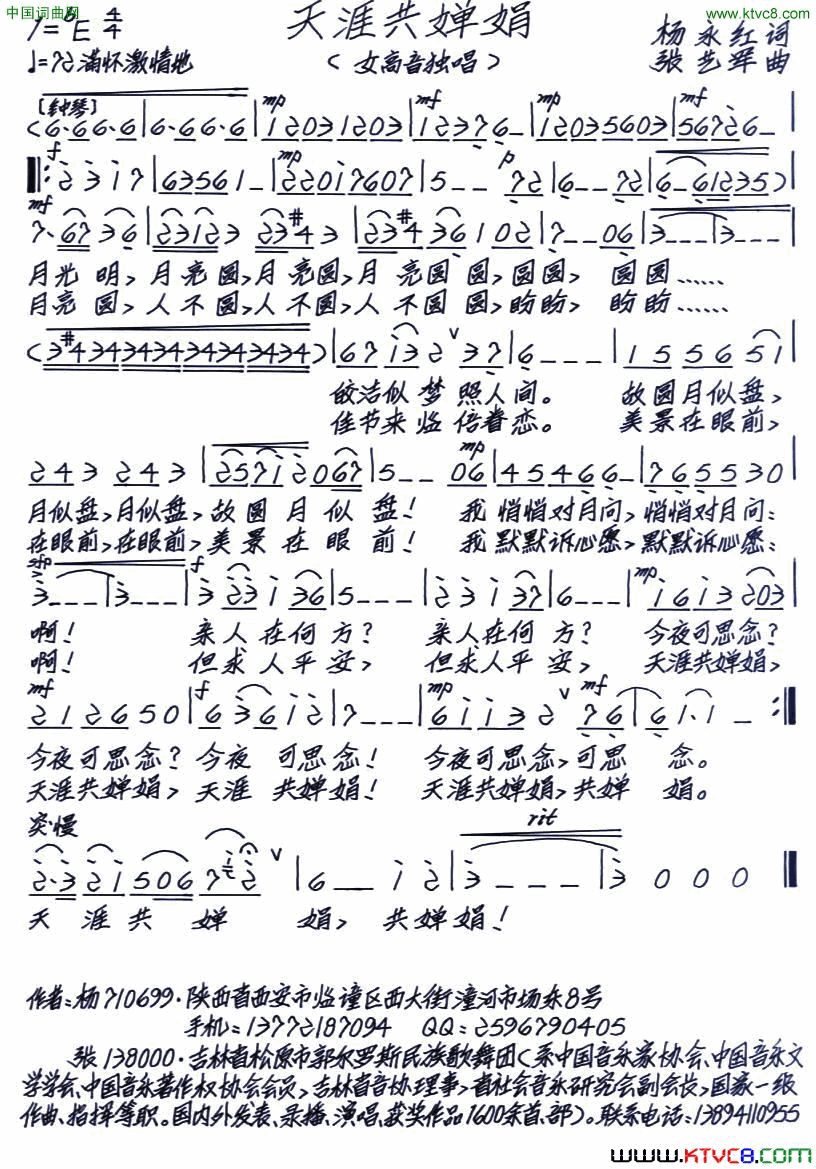 中国词曲网
www.ktvc8.com
天涯共婵娟
1=♭E 4/4
杨永红词
♩=72 满怀激情地
（女高音独唱）
张艺军曲
[钟琴] mp mf mp mf
(6·6 6·6|6·6 6·6|1203 1203|1237 6–|1203 5603|5672 6–|
f mp p
‖:2 3 1 7|63561–|2201 7607|5–– 72|6–– 72|6–61235)|
mf
7·67 36|2312 3 23#43|23#4 36 102|7––06|3–––|3–––|
月光明,月亮圆,月亮圆,月亮圆圆,圆圆, 圆圆……
月亮圆,人不圆,人不圆,人不圆圆,盼盼, 盼盼……
(3#434 3434 3434 3434 3434)|67 13 2 ∨ 37|6–––|1 5 5 6 51|
皎洁似梦照人间。 故圆月似盘,
佳节来临倍眷恋。 美景在眼前,
mp
243 243|2571 2067|5––06|45466–|765530|
月似盘,月似盘,故圆月似盘! 我悄悄对月问,悄悄对月问:
在眼前,在眼前,美景在眼前! 我默默诉心愿,默默诉心愿:
sfp f mp
3–––|3–––|3 23 1 36|5–––|2 3 1 37|6–––|1613 203|
啊! 亲人在何方? 亲人在何方? 今夜可思念?
啊! 但求人平安, 但求人平安, 天涯共婵娟,
mf f mp mf
212650|6 36 12|7–––|6113 2 ∨ 76|6 1·1 –:‖
今夜可思念?今夜 可思念! 今夜可思念,可思 念。
天涯共婵娟,天涯 共婵娟! 天涯共婵娟,共婵 娟。
突慢
rit
2·3 21 506 7 2 ∨|6–– 1 2|3–––|3 0 0 0‖
天涯共 婵 娟, 共婵娟!
作者:杨710699·陕西省西安市临潼区西大街潼河市场东8号
手机=13772187094 QQ=2596790405
张138000·吉林省松原市郭尔罗斯民族歌舞团(系中国音乐家协会、中国音乐文
学学会、中国音乐著作权协会会员,吉林省音协理事,省社会音乐研究会副会长,国家一级
作曲、指挥等职。国内外发表、录播、演唱、获奖作品1600余首、部)。联系电话:13894110955
www.KTVC8.com